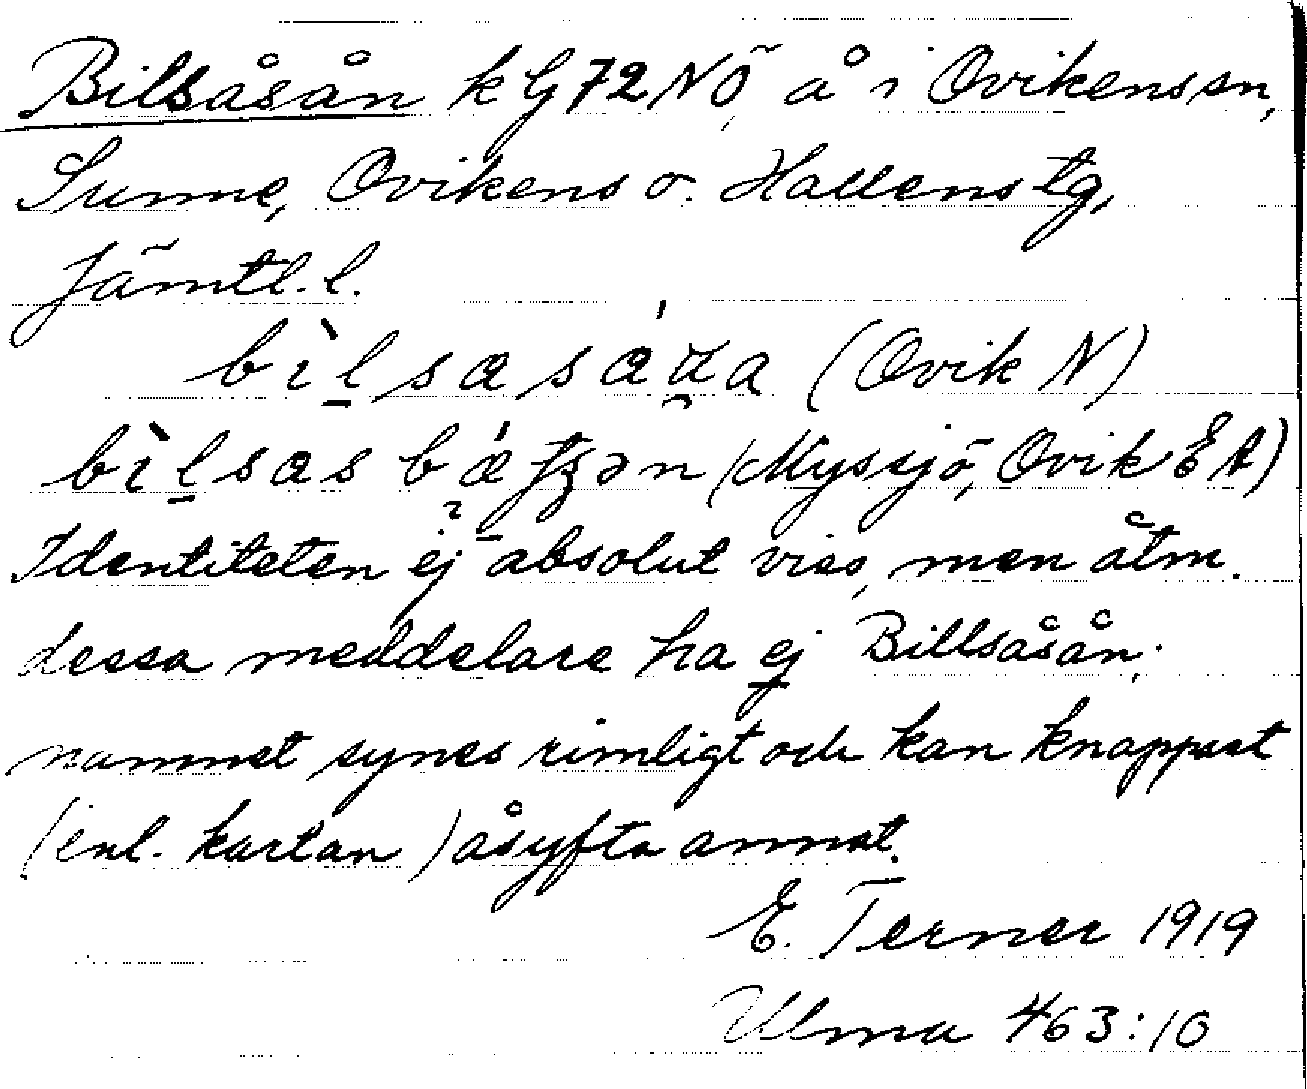 Billsåsån k G 72 NÖ, å i Ovikens sn,
Sunne, Ovikens o. Hallens tg,
Jämtl. l.
(Ovik N)
(Myssjö, Ovik EA)
Identiteten ej absolut viss, men åtm.
dessa meddelare ha ej Billsåsån;
namnet synes rimligt och kan knappast
(enl. kartan) åsyfta annat.
E. Terner 1919
Ulma 463:10